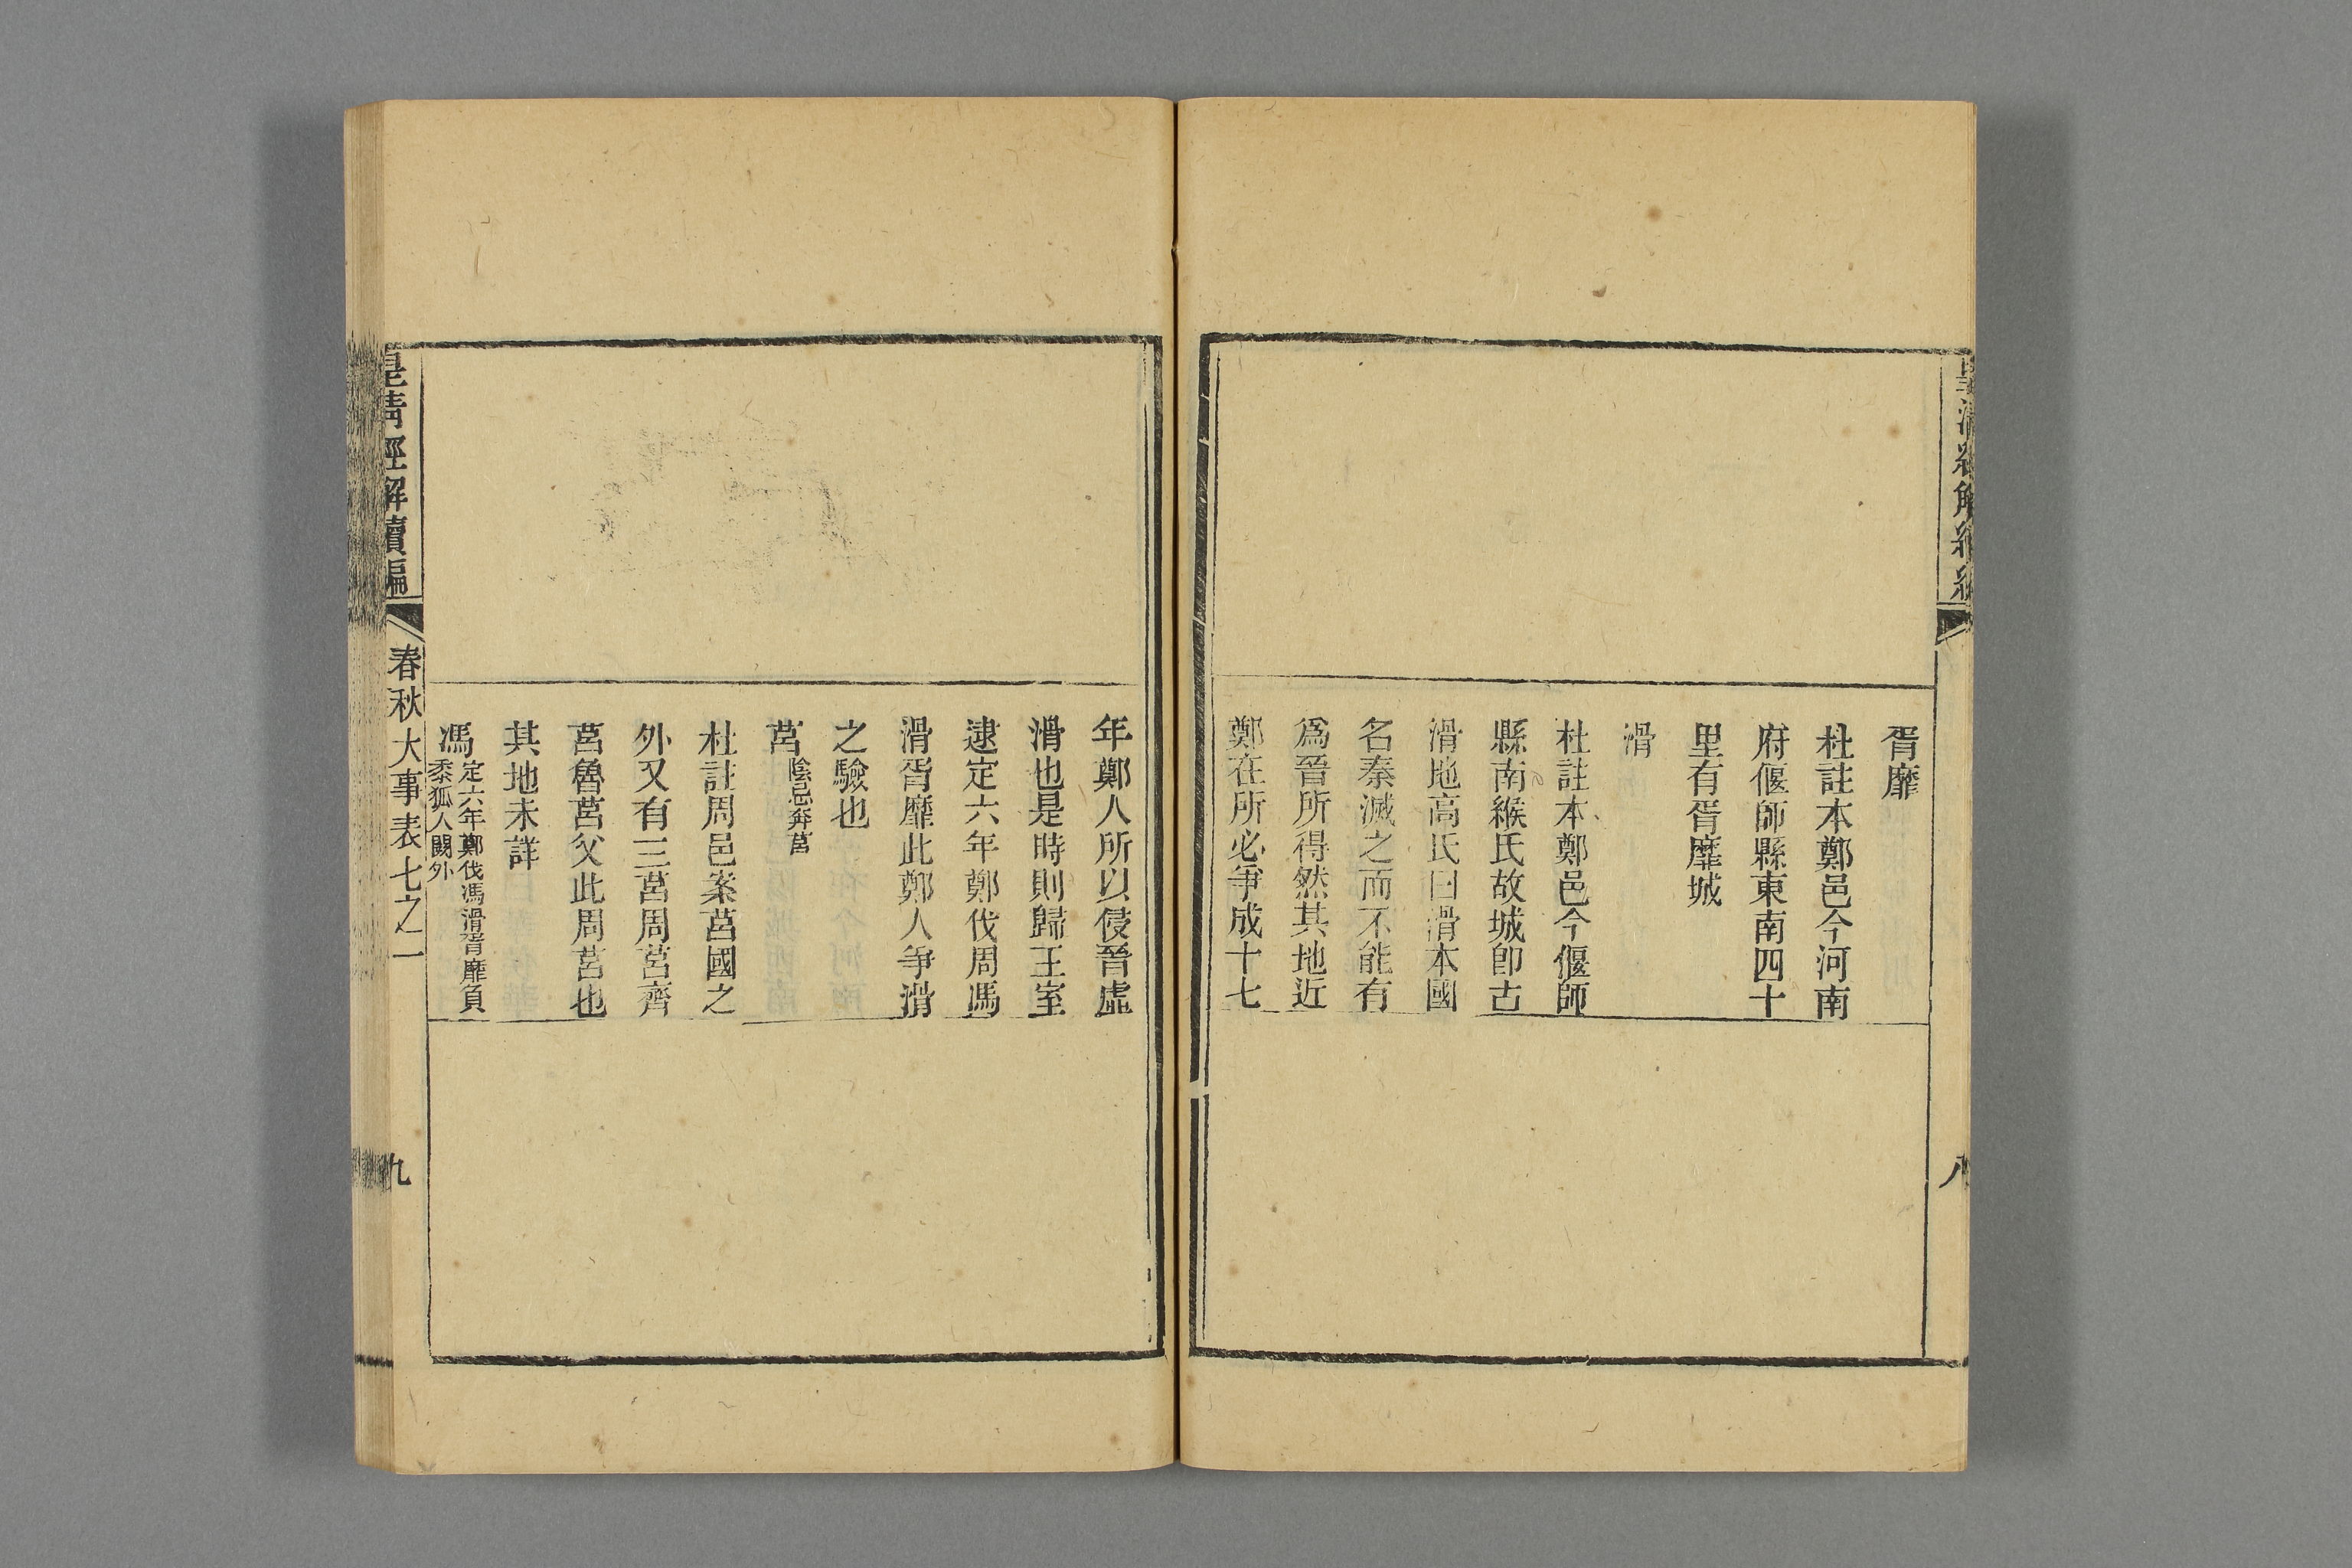 皇清經解續編
八
胥靡
杜註本鄭邑今河南
府偃師縣東南四十
里有胥靡城
滑
杜註本鄭邑今偃師
縣南緱氏故城卽古
滑地高氏曰滑本國
名秦滅之而不能有
爲晉所得然其地近
鄭在所必爭成十七
年鄭人所以侵晉虛
滑也是時則歸王室
逮定六年鄭伐周馮
滑胥靡此鄭人爭滑
之驗也
莒陰忌奔莒
杜註周邑案莒國之
外又有三莒周莒齊
莒魯莒父此周莒也
其地未詳
馮定六年鄭伐馮滑胥靡負
黍狐人闕外
皇清經解續編
春秋大事表七之一
九